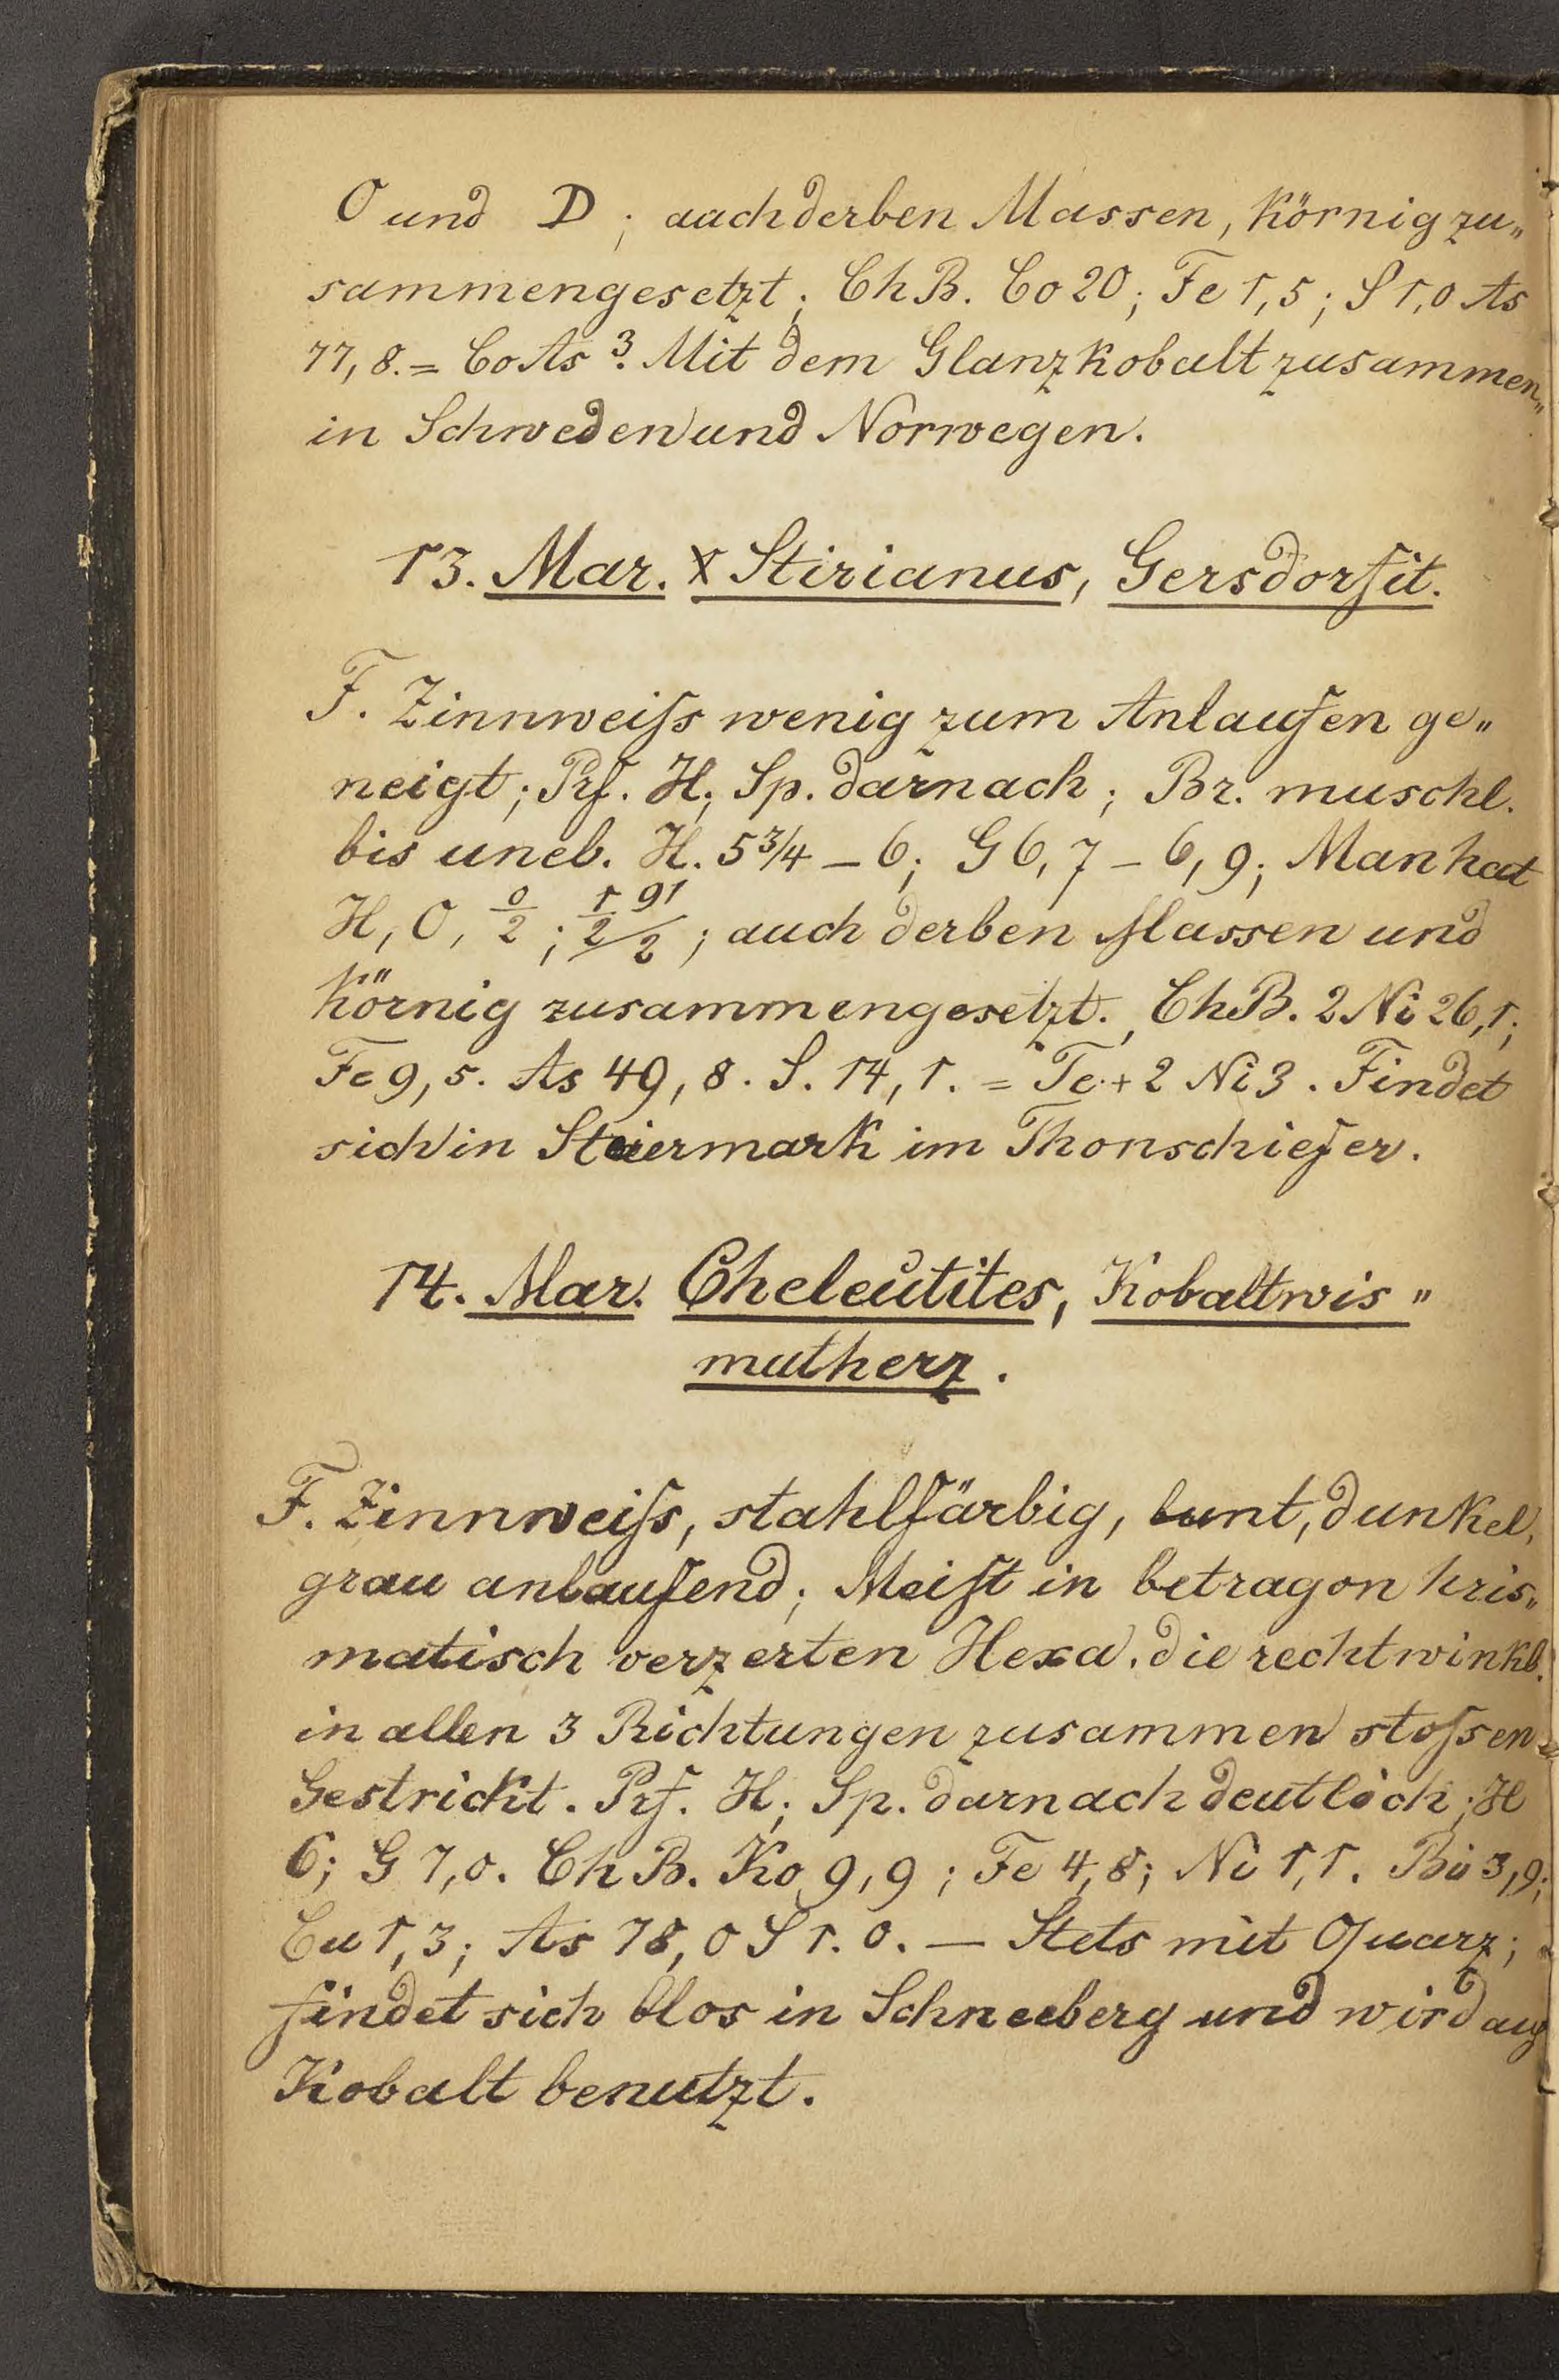 O und D; auch derben Massen, körnig zu„
sammengesetzt; ChB. Co 20; Fe 1,5; S 1,0 As
77,8. = CoAs³. Mit dem Glanzkobalt zusammen„
in Schweden und Norwegen.
13. Mar. X Stirianus, Gersdorfit.
F. Zinnweiſs wenig zum Anlaufen ge„
neigt; Prf. H; Sp. darnach; Br. muschl.
bis uneb. H. 5 3/4 – 6; G 6,7 – 6,9; Man hat
H, O, 0/2; ; auch derben Massen und
körnig zusammengesetzt. ChB. 2 Ni 26,1;
Fe 9,5. As 49,8. S. 14,1. = Te + 2 Ni 3. Findet
sich in Steiermark im Thonschiefer.
14. Mar. Cheleutites, Kobaltwis„
mutherz.
F. Zinnweiſs, stahlfärbig, bunt, dunkel,
grau anlaufend; Meiſt in betragon kris„
matisch verzerten Hexa. die rechtwinkl.
in allen 3 Richtungen zusammen stoſsen
Gestrickt. Prf. H; Sp. darnach deutlich; H
6; G 7,0. ChB. Ko 9,9; Fe 4,8; Ni 1,1. Bi 3,9;
Cu 1,3; As 78,0 S 1.0. — Stets mit Quarz;
findet sich blos in Schneeberg und wird auf
Kobalt benutzt.